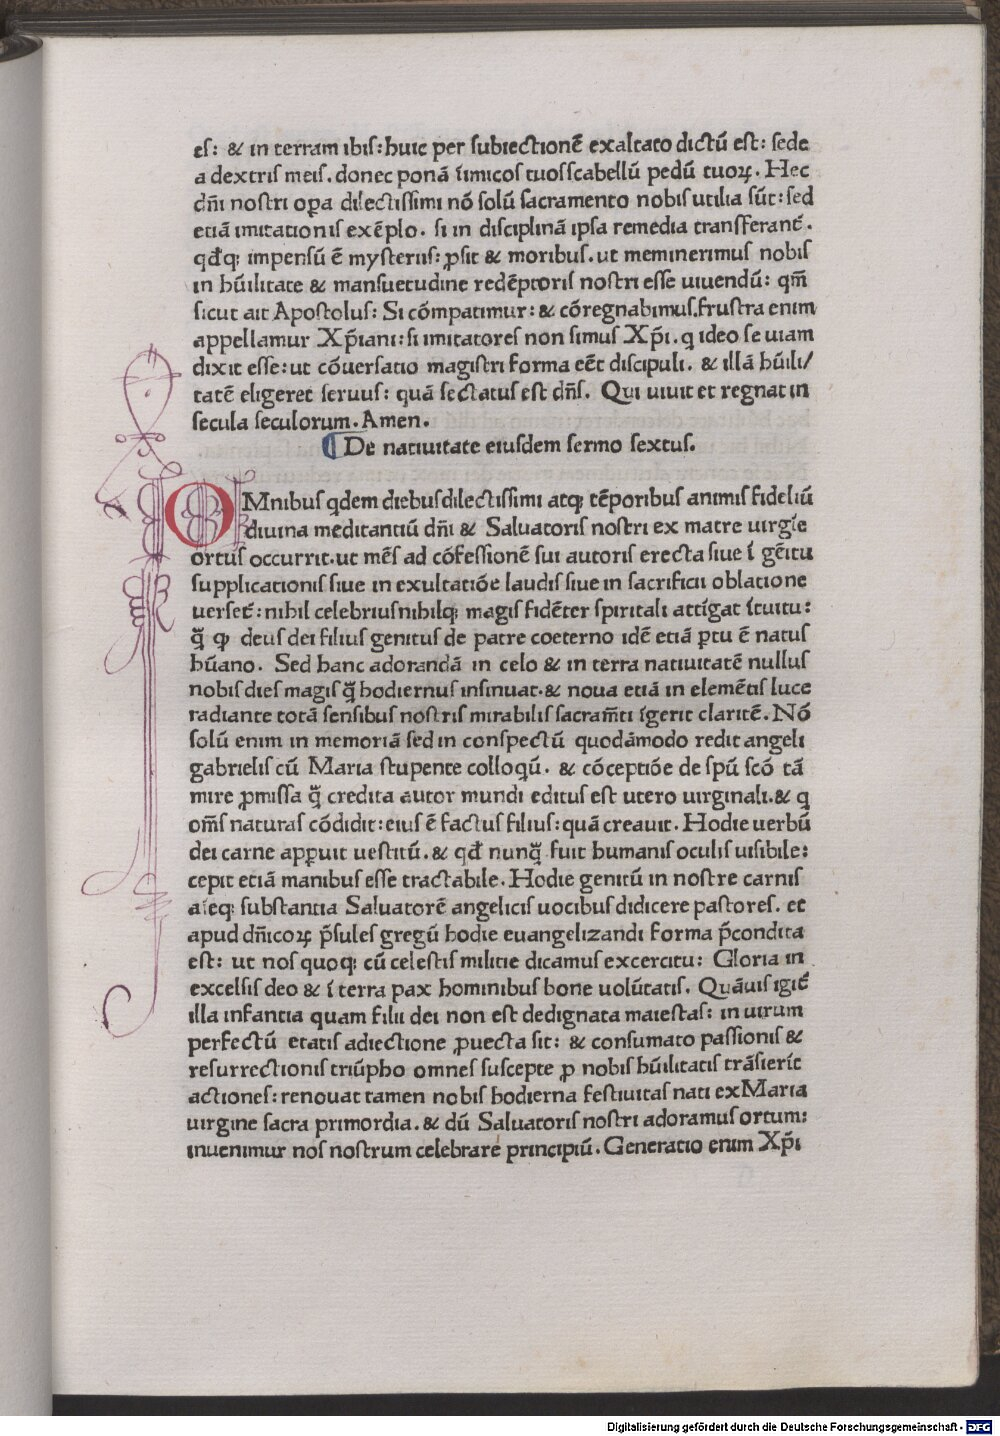 eſ: & in terram ibiſ: huic per ſubiectionē exaltato dictū eſt: ſede
a dextriſ meiſ. donec ponā īimicoſ tuoſ ſcabellū pedū tuoꝝ. Hec
dn̄i noſtri oꝑa dilectiſſimi nō ſolū ſacramento nobiſ utilia ſūt: ſed
etiā imitationiſ exēplo. ſi in diſciplinā ipſa remedia tranſferant̄.
qđq; impenſū ē myſteriiſ: ꝓſit & moribuſ. ut meminerimuſ nobiſ
in hūilitate & manſuetudine redēptoriſ noſtri eſſe uiuendū: qm̄
ſicut ait Apoſtoluſ: Si cōmpatimur: & cōregnabimuſ. fruſtra enim
appellamur Xp̄iani: ſi imitatoreſ non ſimuſ Xp̄i. q ideo ſe uiam
dixit eſſe: ut cōuerſatio magiſtri forma eēt diſcipuli. & illā hūili/
tatē eligeret ſeruuſ: quā ſectatuſ eſt dn̄ſ. Qui uiuit et regnat in
ſecula ſeculorum. Amen.
¶ De natiuitate eiuſdem ſermo ſextuſ.
OMnibuſ qdem diebuſ dilectiſſimi atq; tēporibuſ animiſ fideliū
diuina meditantiū dn̄i & Saluatoriſ noſtri ex matre uirgīe
ortuſ occurrit. ut mēſ ad cōfeſſionē ſui autoriſ erecta ſiue ī gēitu
ſupplicationiſ ſiue in exultatiōe laudiſ ſiue in ſacrificii oblatione
uerſet̄: nihil celebriuſ nihilq; magiſ fidēter ſpiritali attīgat ītuitu:
q̄̄ ꝙ deuſ dei filiuſ genituſ de patre coeterno idē etiā ꝑtu ē natuſ
hūano. Sed hanc adorandā in celo & in terra natiuitatē nulluſ
nobiſ dieſ magiſ q̄̄ hodiernuſ inſinuat. & noua etiā in elemētiſ luce
radiante totā ſenſibuſ noſtriſ mirabiliſ ſacram̄ti īgerit claritē. Nō
ſolū enim in memoriā ſed in conſpectū quodāmodo redit angeli
gabrieliſ cū Maria ſtupente colloqū. & cōceptiōe de ſpū ſcō tā
mire ꝓmiſſa q̄̄ credita autor mundi edituſ eſt utero uirginali. & q
om̄ſ naturaſ cōdidit: eiuſ ē factuſ filiuſ: quā creauit. Hodie uerbū
dei carne apꝑuit ueſtitū. & qđ nunq̄̄ fuit humaniſ oculiſ uiſibile:
cepit etiā manibuſ eſſe tractabile. Hodie genitū in noſtre carniſ
aīeq; ſubſtantia Saluatorē angeliciſ uocibuſ didicere paſtoreſ. et
apud dn̄icoꝝ p̄ſuleſ gregū hodie euangelizandi forma p̄condita
eſt: ut noſ quoq; cū celeſtiſ militie dicamuſ excercitu: Gloria in
excelſiſ deo & ī terra pax hominibuſ bone uolūtatiſ. Quāuiſ igit̄
illa infantia quam filii dei non eſt dedignata maieſtaſ: in uirum
perfectū etatiſ adiectione ꝓuecta ſit: & conſumato paſſioniſ &
reſurrectioniſ triūpho omneſ ſuſcepte ꝓ nobiſ hūilitatiſ trāſierīt
actioneſ: renouat tamen nobiſ hodierna feſtiuitaſ nati ex Maria
uirgine ſacra primordia. & dū Saluatoriſ noſtri adoramuſ ortum:
inuenimur noſ noſtrum celebrare principiū. Generatio enim Xp̄i
Digitalisierung gefördert durch die Deutsche Forschungsgemeinschaft - DFG